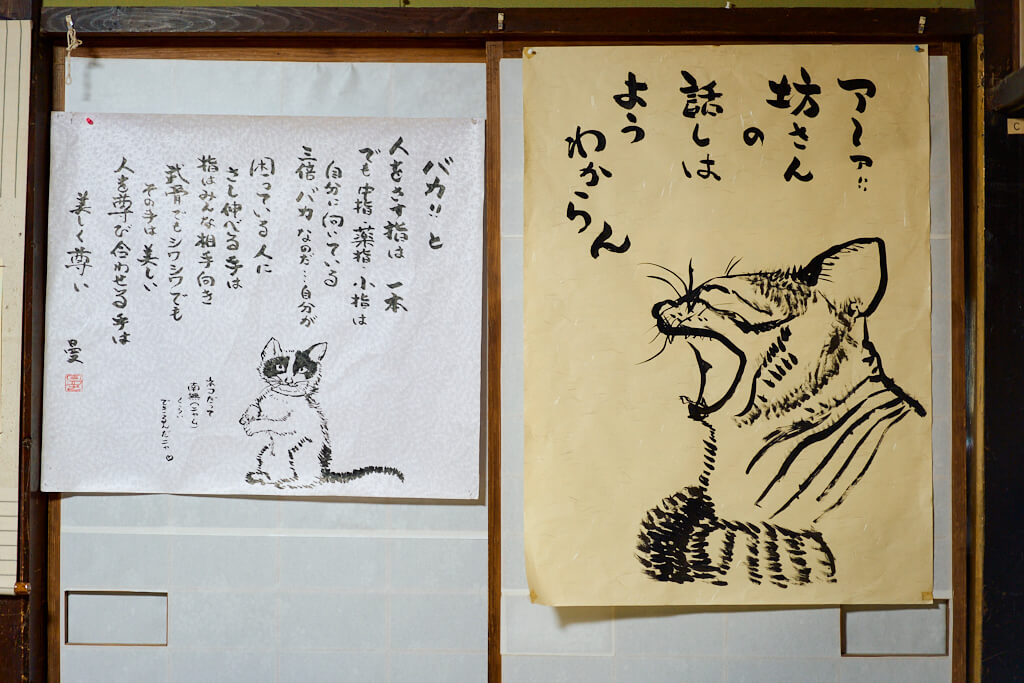 アーア!!
坊さん
の
話しは
よう
わからん
バカ!!と
人をさす指は一本
でも中指・薬指・小指は
自分に向いている
三倍バカなのだ…自分が
困っている人に
さし伸べる手は
指はみんな相手向き
武骨でもシワシワでも
その手は美しい
人を尊び合わせる手は
美しく尊い
曼
ネコだって
南無(ニャム)
くらい
できるんだニャ♡
C